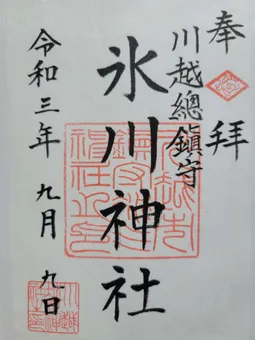 奉拝
川越總鎮守
氷川神社
令和三年 九月 九日